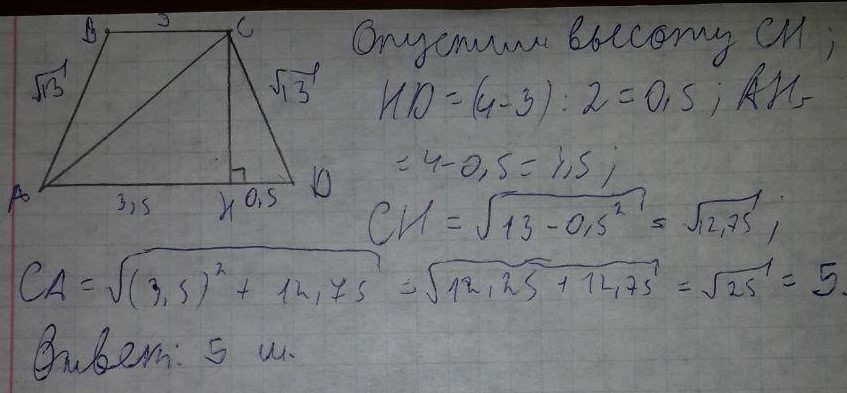 B 3 C
√13 √13
A 3,5 H 0,5 D
Опустим высоту CH;
HD = (4-3) : 2 = 0,5; AH =
= 4-0,5 = 3,5;
CH = √13 - 0,5² = √12,75;
CA = √(3,5)² + 12,75 = √12,25 + 12,75 = √25 = 5.
Ответ: 5 м.